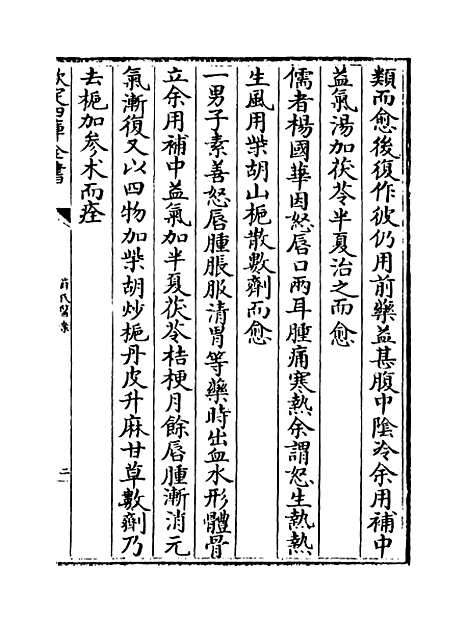 類而愈後復作彼仍用前藥益甚腹中陰冷余用補中
益氣湯加茯苓半夏治之而愈
儒者楊國華因怒唇口兩耳腫痛寒熱余謂怒生熱熱
生風用柴胡山梔散數劑而愈
一男子素善怒唇腫脹服清胃等藥時出血水形體骨
立余用補中益氣加半夏茯苓桔梗月餘唇腫漸消元
氣漸復又以四物加柴胡炒梔丹皮升麻甘草數劑乃
去梔加參术而痊
欽定四庫全書
薛氏醫案
二